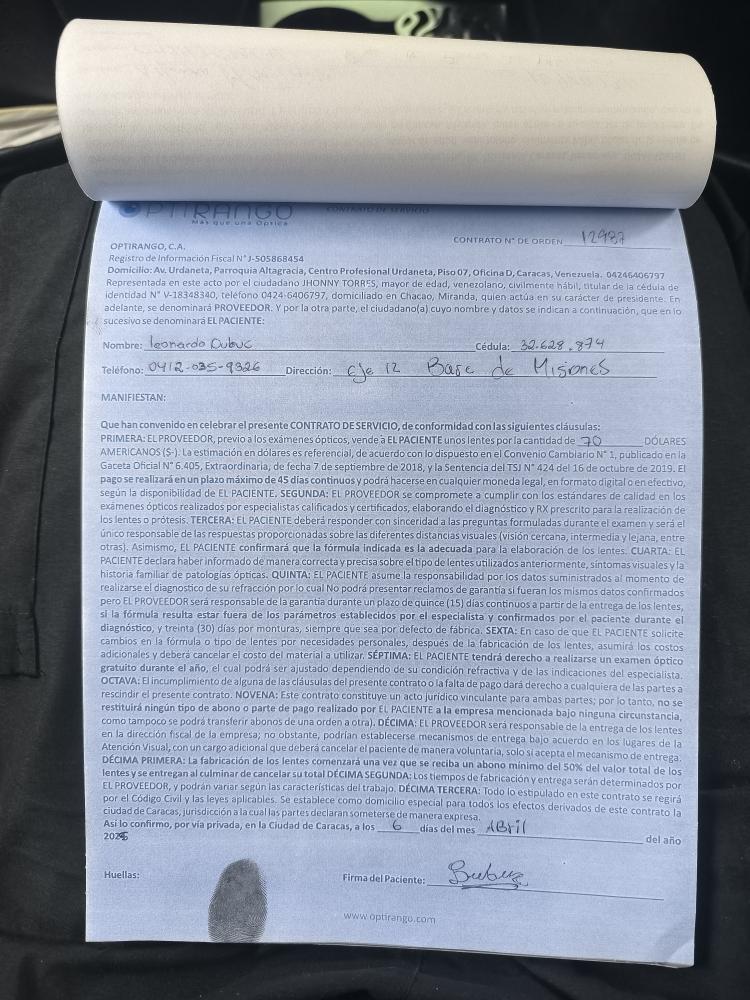 OPTIRANGO
Más que una Optica
CONTRATO DE SERVICIO
CONTRATO N° DE ORDEN 12987
OPTIRANGO, C.A.
Registro de Información Fiscal N° J-505868454
Domicilio: Av. Urdaneta, Parroquia Altagracia, Centro Profesional Urdaneta, Piso 07, Oficina D, Caracas, Venezuela. 04246406797
Representada en este acto por el ciudadano JHONNY TORRES, mayor de edad, venezolano, civilmente hábil, titular de la cédula de
identidad N° V-18348340, teléfono 0424-6406797, domiciliado en Chacao, Miranda, quien actúa en su carácter de presidente. En
adelante, se denominará PROVEEDOR. Y por la otra parte, el ciudadano(a) cuyo nombre y datos se indican a continuación, que en lo
sucesivo se denominará EL PACIENTE:
Nombre: leonardo Dubuc Cédula: 32.628.874
Teléfono: 0412-035-9326 Dirección: eje 12 Base de Misiones
MANIFIESTAN:
Que han convenido en celebrar el presente CONTRATO DE SERVICIO, de conformidad con las siguientes cláusulas:
PRIMERA: EL PROVEEDOR, previo a los exámenes ópticos, vende a EL PACIENTE unos lentes por la cantidad de 70 DÓLARES
AMERICANOS ($-). La estimación en dólares es referencial, de acuerdo con lo dispuesto en el Convenio Cambiario N° 1, publicado en la
Gaceta Oficial N° 6.405, Extraordinaria, de fecha 7 de septiembre de 2018, y la Sentencia del TSJ N° 424 del 16 de octubre de 2019. El
pago se realizará en un plazo máximo de 45 días continuos y podrá hacerse en cualquier moneda legal, en formato digital o en efectivo,
según la disponibilidad de EL PACIENTE. SEGUNDA: EL PROVEEDOR se compromete a cumplir con los estándares de calidad en los
exámenes ópticos realizados por especialistas calificados y certificados, elaborando el diagnóstico y RX prescrito para la realización de
los lentes o prótesis. TERCERA: EL PACIENTE deberá responder con sinceridad a las preguntas formuladas durante el examen y será el
único responsable de las respuestas proporcionadas sobre las diferentes distancias visuales (visión cercana, intermedia y lejana, entre
otras). Asimismo, EL PACIENTE confirmará que la fórmula indicada es la adecuada para la elaboración de los lentes. CUARTA: EL
PACIENTE declara haber informado de manera correcta y precisa sobre el tipo de lentes utilizados anteriormente, síntomas visuales y la
historia familiar de patologías ópticas. QUINTA: EL PACIENTE asume la responsabilidad por los datos suministrados al momento de
realizarse el diagnostico de su refracción por lo cual No podrá presentar reclamos de garantía si fueran los mismos datos confirmados
pero EL PROVEEDOR será responsable de la garantía durante un plazo de quince (15) días continuos a partir de la entrega de los lentes,
si la fórmula resulta estar fuera de los parámetros establecidos por el especialista y confirmados por el paciente durante el
diagnóstico, y treinta (30) días por monturas, siempre que sea por defecto de fábrica. SEXTA: En caso de que EL PACIENTE solicite
cambios en la fórmula o tipo de lentes por necesidades personales, después de la fabricación de los lentes, asumirá los costos
adicionales y deberá cancelar el costo del material a utilizar. SÉPTIMA: EL PACIENTE tendrá derecho a realizarse un examen óptico
gratuito durante el año, el cual podrá ser ajustado dependiendo de su condición refractiva y de las indicaciones del especialista.
OCTAVA: El incumplimiento de alguna de las cláusulas del presente contrato o la falta de pago dará derecho a cualquiera de las partes a
rescindir el presente contrato. NOVENA: Este contrato constituye un acto jurídico vinculante para ambas partes; por lo tanto, no se
restituirá ningún tipo de abono o parte de pago realizado por EL PACIENTE a la empresa mencionada bajo ninguna circunstancia,
como tampoco se podrá transferir abonos de una orden a otra). DÉCIMA: EL PROVEEDOR será responsable de la entrega de los lentes
en la dirección fiscal de la empresa; no obstante, podrían establecerse mecanismos de entrega bajo acuerdo en los lugares de la
Atención Visual, con un cargo adicional que deberá cancelar el paciente de manera voluntaria, solo si acepta el mecanismo de entrega.
DÉCIMA PRIMERA: La fabricación de los lentes comenzará una vez que se reciba un abono mínimo del 50% del valor total de los
lentes y se entregan al culminar de cancelar su total DÉCIMA SEGUNDA: Los tiempos de fabricación y entrega serán determinados por
EL PROVEEDOR, y podrán variar según las características del trabajo. DÉCIMA TERCERA: Todo lo estipulado en este contrato se regirá
por el Código Civil y las leyes aplicables. Se establece como domicilio especial para todos los efectos derivados de este contrato la
ciudad de Caracas, jurisdicción a la cual las partes declaran someterse de manera expresa.
Así lo confirmo, por vía privada, en la Ciudad de Caracas, a los 6 días del mes Abril del año
Huellas:
Firma del Paciente: Dubuc
www.optirango.com